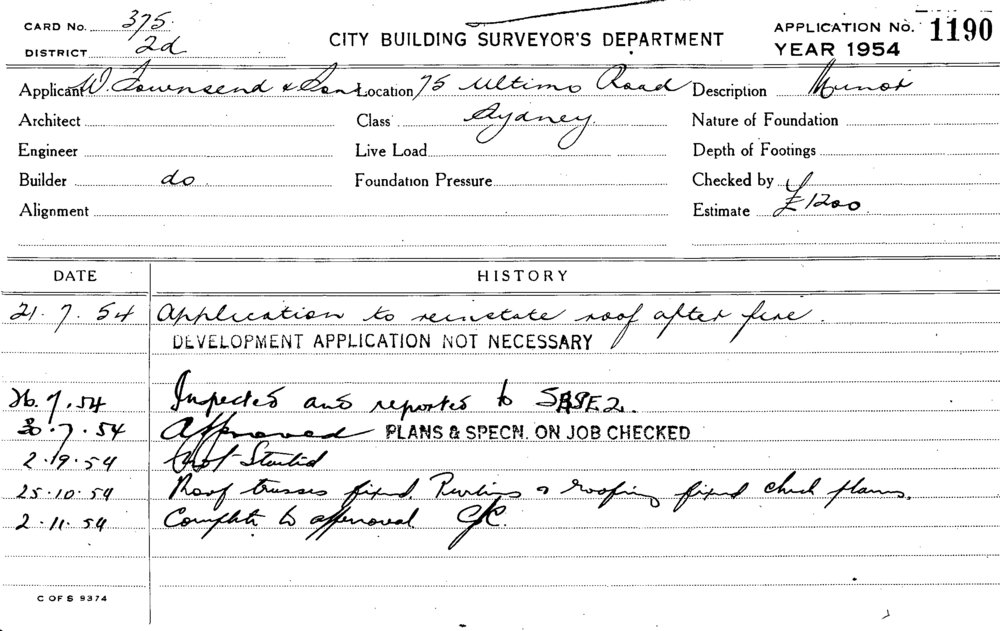 CARD No. 375.
DISTRICT 2d
CITY BUILDING SURVEYOR'S DEPARTMENT
APPLICATION No. 1190
YEAR 1954
Applicant W. Townsend & Son Location 75 Ultimo Road Description Minor
Architect Class Sydney. Nature of Foundation
Engineer Live Load Depth of Footings
Builder do Foundation Pressure Checked by
Alignment Estimate £1200.
DATE HISTORY
21.7.54 Application to reinstate roof after fire.
DEVELOPMENT APPLICATION NOT NECESSARY
26.7.54 Inspected and reported to
30.7.54 Approved PLANS & SPECN. ON JOB CHECKED
2.9.54 Not Started
25.10.54 Roof trusses fixed, Purlins & roofing fixed check plans.
2.11.54 Complete to approval
C OF S 9374